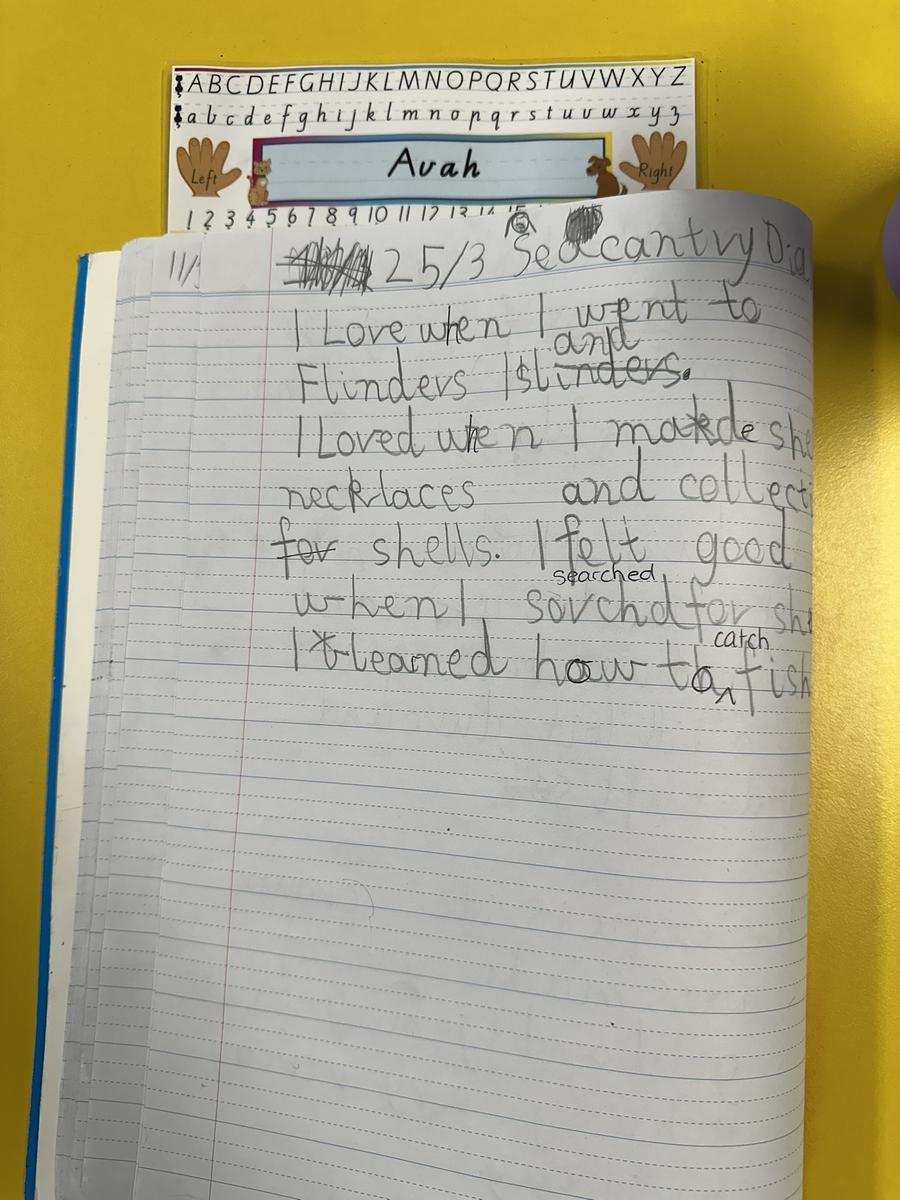 ABCDEFGHIJKLMNOPQRSTUVWXYZ
abcdefghijklmnopqrstuvwxyz
Left Avah Right
1 2 3 4 5 6 7 8 9 10 11 12 13 14 15
11/
25/3 Seacantry Dia
I Love when I went to
and
Flinders Islinders.
I Loved when I made she
necklaces and collecti
for shells. I felt good
searched
when I sorchd for she
catch
I learned how to fish